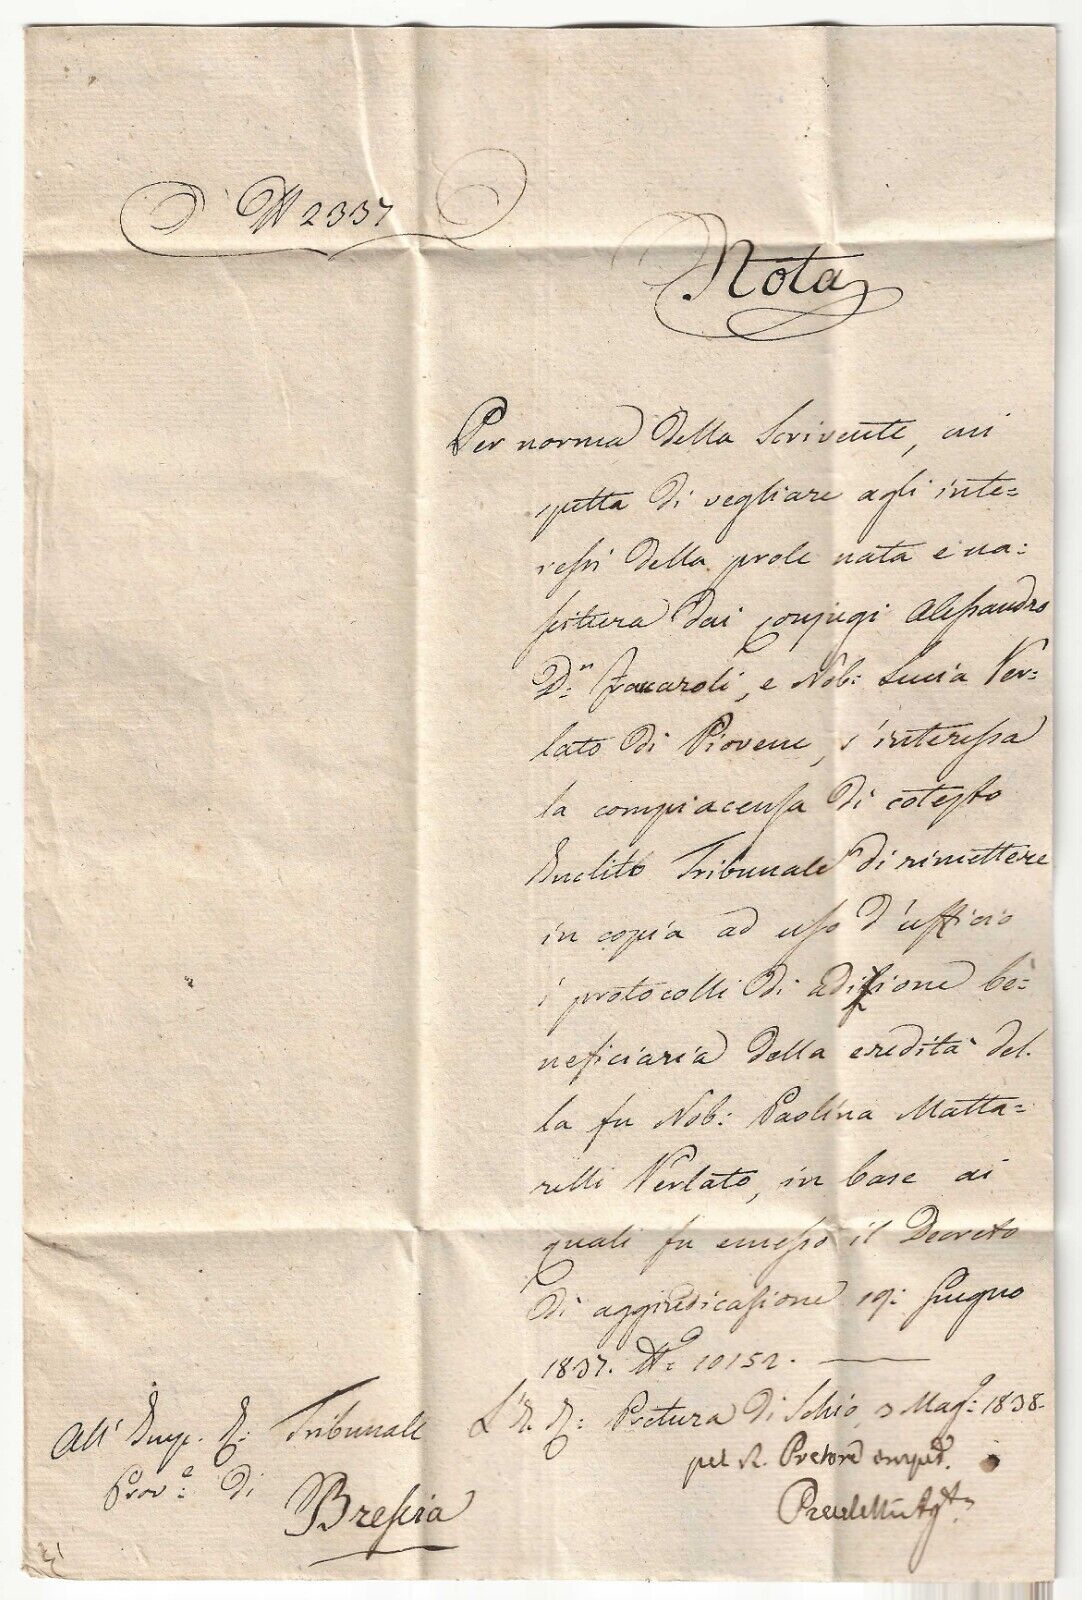 N 2337
Nota
Per norma della Scrivente, cui
spetta di vegliare agli inte=
ressi della prole nata e na=
scitura dai Conjugi Alessandro
D.n Zaccaroli, e Nob: Lucia Ver=
lato di Piovene, s'interessa
la compiacenza di cotesto
Inclito Tribunale di rimettere
in copia ad uso d'ufficio
i protocolli di adizione be=
neficiaria della eredità del
la fu Nob: Paolina Matta=
relli Verlato, in base ai
quali fu emesso il Decreto
di aggiudicazione 19: Giugno
1837. N.o 10152.
L'I. R: Pretura di Schio, 3 Mag.o 1838.
pel R. Pretore imped.
All' Imp. R: Tribunale
Prov.e di
Brescia